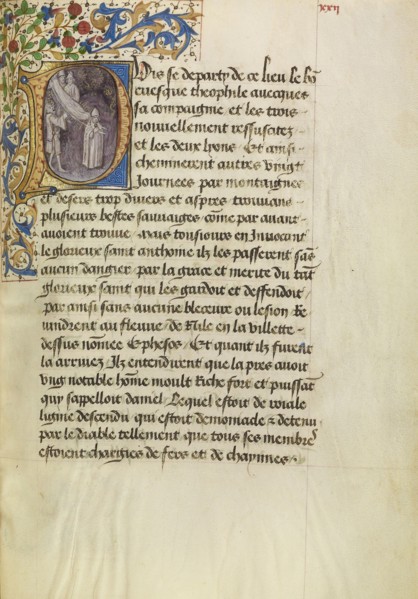 xxii
Puis se departy de ce lieu le bõ
euesque theophile auecques
sa compaignie et les trois
nouuellement ressuscitez
et les deux lyons Et ainsi
cheminerent autres vingt
Journees par montaignes
et desers trop diuers et aspres trouuans
plusieurs bestes sauuaiges cõme par auant
auoient trouue mais tousiours en Inuocant
le glorieux saint anthoine ilz les passerent sãs
aucun dangier par la grace et merite du
glorieux saint qui les gardoit et deffendoit
par ainsi sans aucune bleceure ou lesion Re
uindrent au fleuue de Nile en la villette
dessus nõmee Ephesos Et quant ilz furent
la arriuez Ilz entendirent que la pres auoit
vng notable hõme moult Riche fort et puissãt
qui sappelloit daniel Lequel estoit de roiale
ligne descendu qui estoit demoniacle & detenu
par le diable tellement que tous ses membres
estoient chargies de fers et de chaynnes